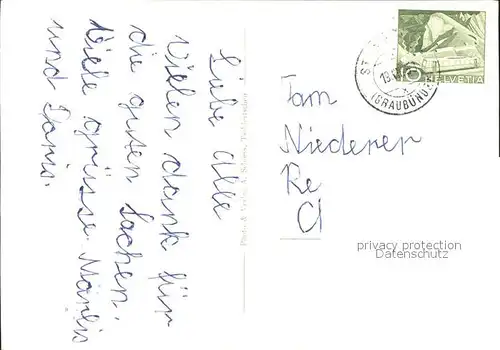 Liebe alle
Vielen dank für
die guten Sachen.
Viele grüsse. Marlis
und Doris.
Fam
Niederer
Re
Cl
ST.
(GRAUBÜND
10
HELVETIA
privacy protection
Datenschutz